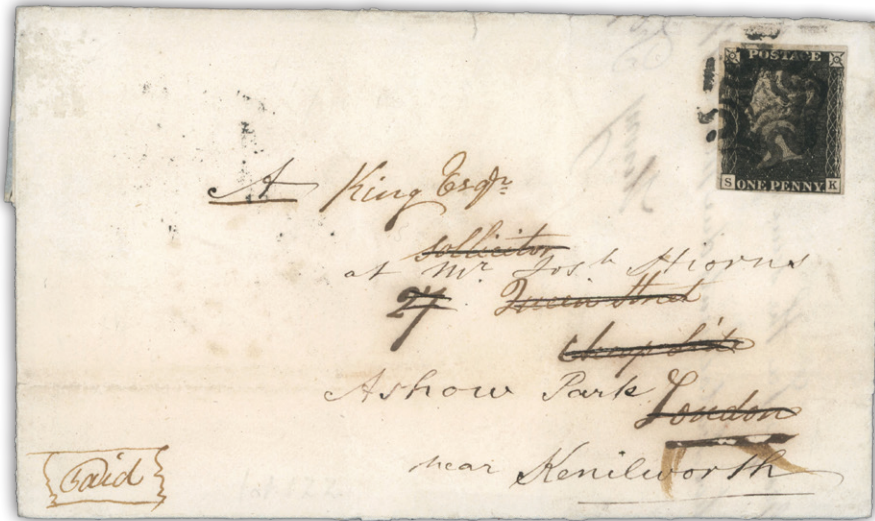 POSTAGE
S ONE PENNY K
A King Esqr
sollicitor
at Mr Josh Hiorns
27 Queen Street
Cheapside
Ashow Park
London
near Kenilworth
Paid